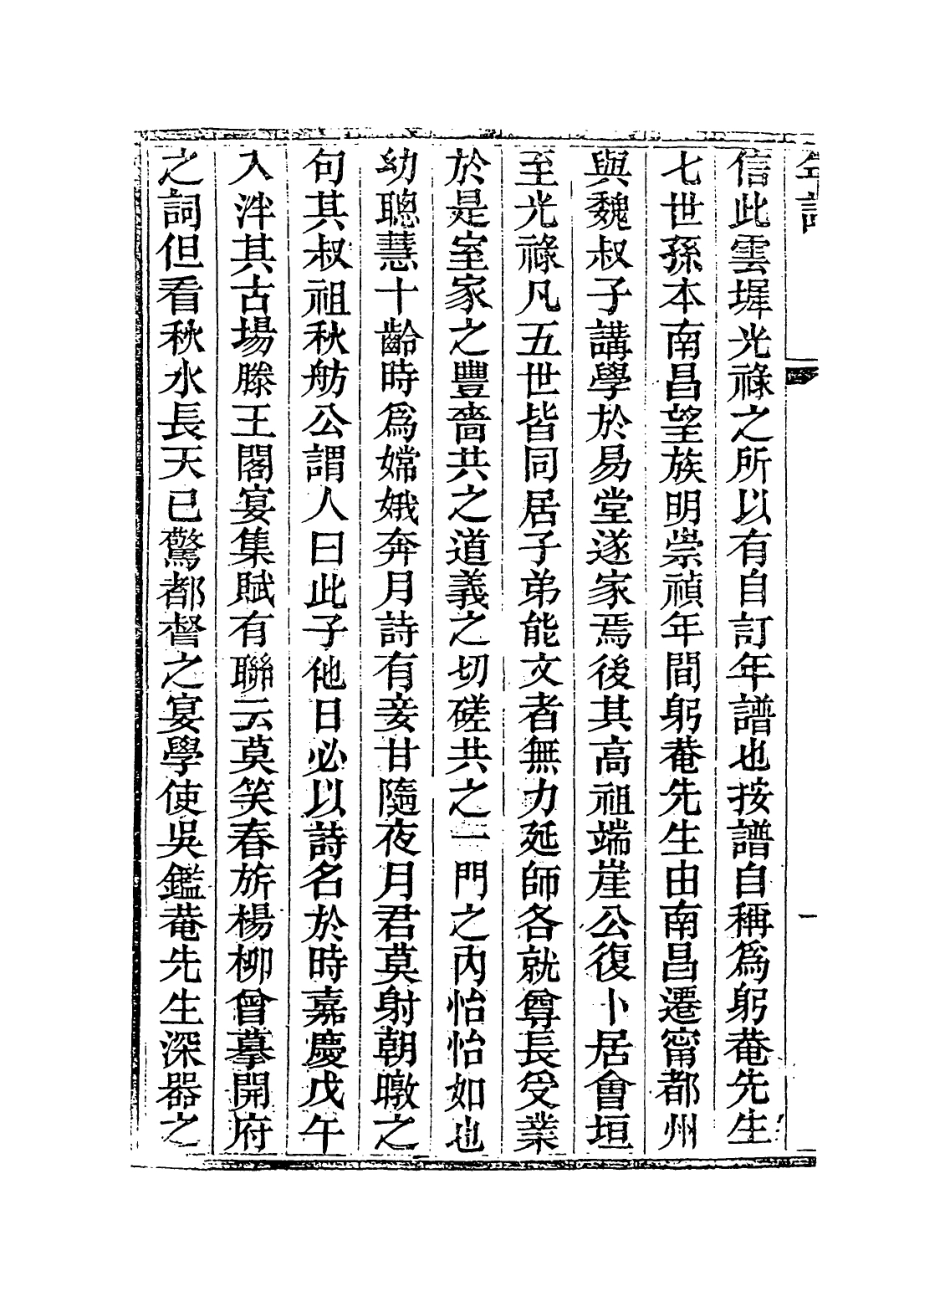 年譜
一
信此雲墀光祿之所以有自訂年譜也按譜自稱為躬菴先生
七世孫本南昌望族明崇禎年間躬菴先生由南昌遷甯都州
與魏叔子講學於易堂遂家焉後其高祖端崖公復卜居會垣
至光祿凡五世皆同居子弟能文者無力延師各就尊長受業
於是室家之豐嗇共之道義之切磋共之一門之內怡怡如也
幼聰慧十齡時爲嫦娥奔月詩有妾甘隨夜月君莫射朝暾之
句其叔祖秋舫公謂人曰此子他日必以詩名於時嘉慶戊午
入泮其古場滕王閣宴集賦有聯云莫笑春旂楊柳曾摹開府
之詞但看秋水長天已驚都督之宴學使吳鑑菴先生深器之